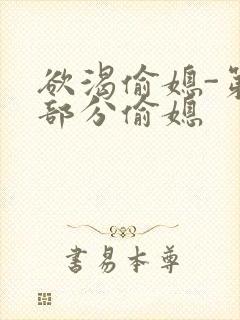 欲渴偷媳-第
部分偷媳
書易本尊